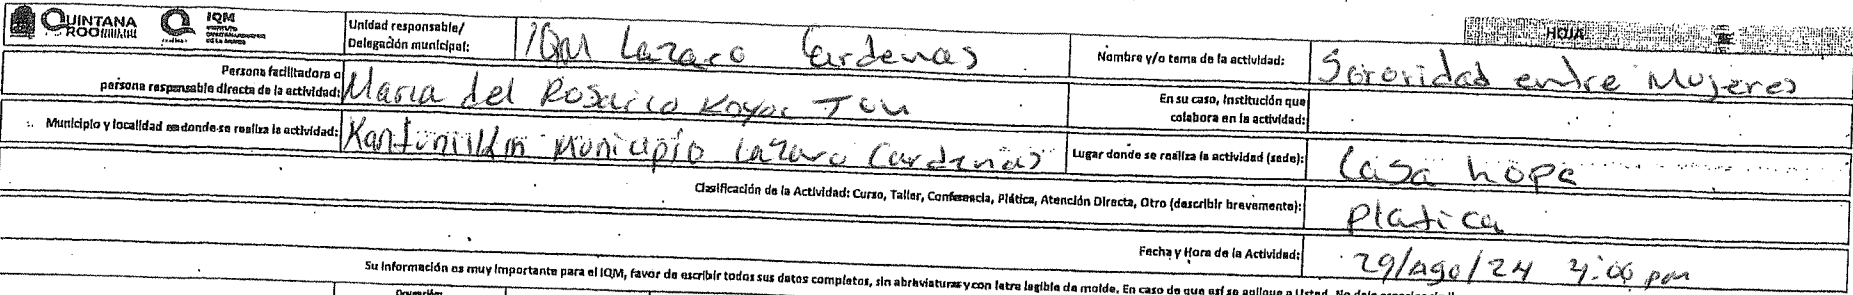 QUINTANA ROO IQM INSTITUTO QUINTANARROENSE DE LA MUJER
HOJA
Unidad responsable/ Delegación municipal: IQM Lazaro Cardenas Nombre y/o tema de la actividad: Sororidad entre Mujeres
Persona facilitadora o persona responsable directa de la actividad: Maria del Rosario En su caso, Institución que colabora en la actividad:
Municipio y localidad en donde se realiza la actividad: Kantunilkin Municipio Lazaro Cardenas Lugar donde se realiza la actividad (sede): Casa hope
Clasificación de la Actividad: Curso, Taller, Conferencia, Plática, Atención Directa, Otro (describir brevemente): Platica
Fecha y Hora de la Actividad: 29/Ago/24 4:00 pm
Su información es muy importante para el IQM, favor de escribir todos sus datos completos, sin abreviaturas y con letra legible de molde. En caso de que así se aplique a Usted. No deje